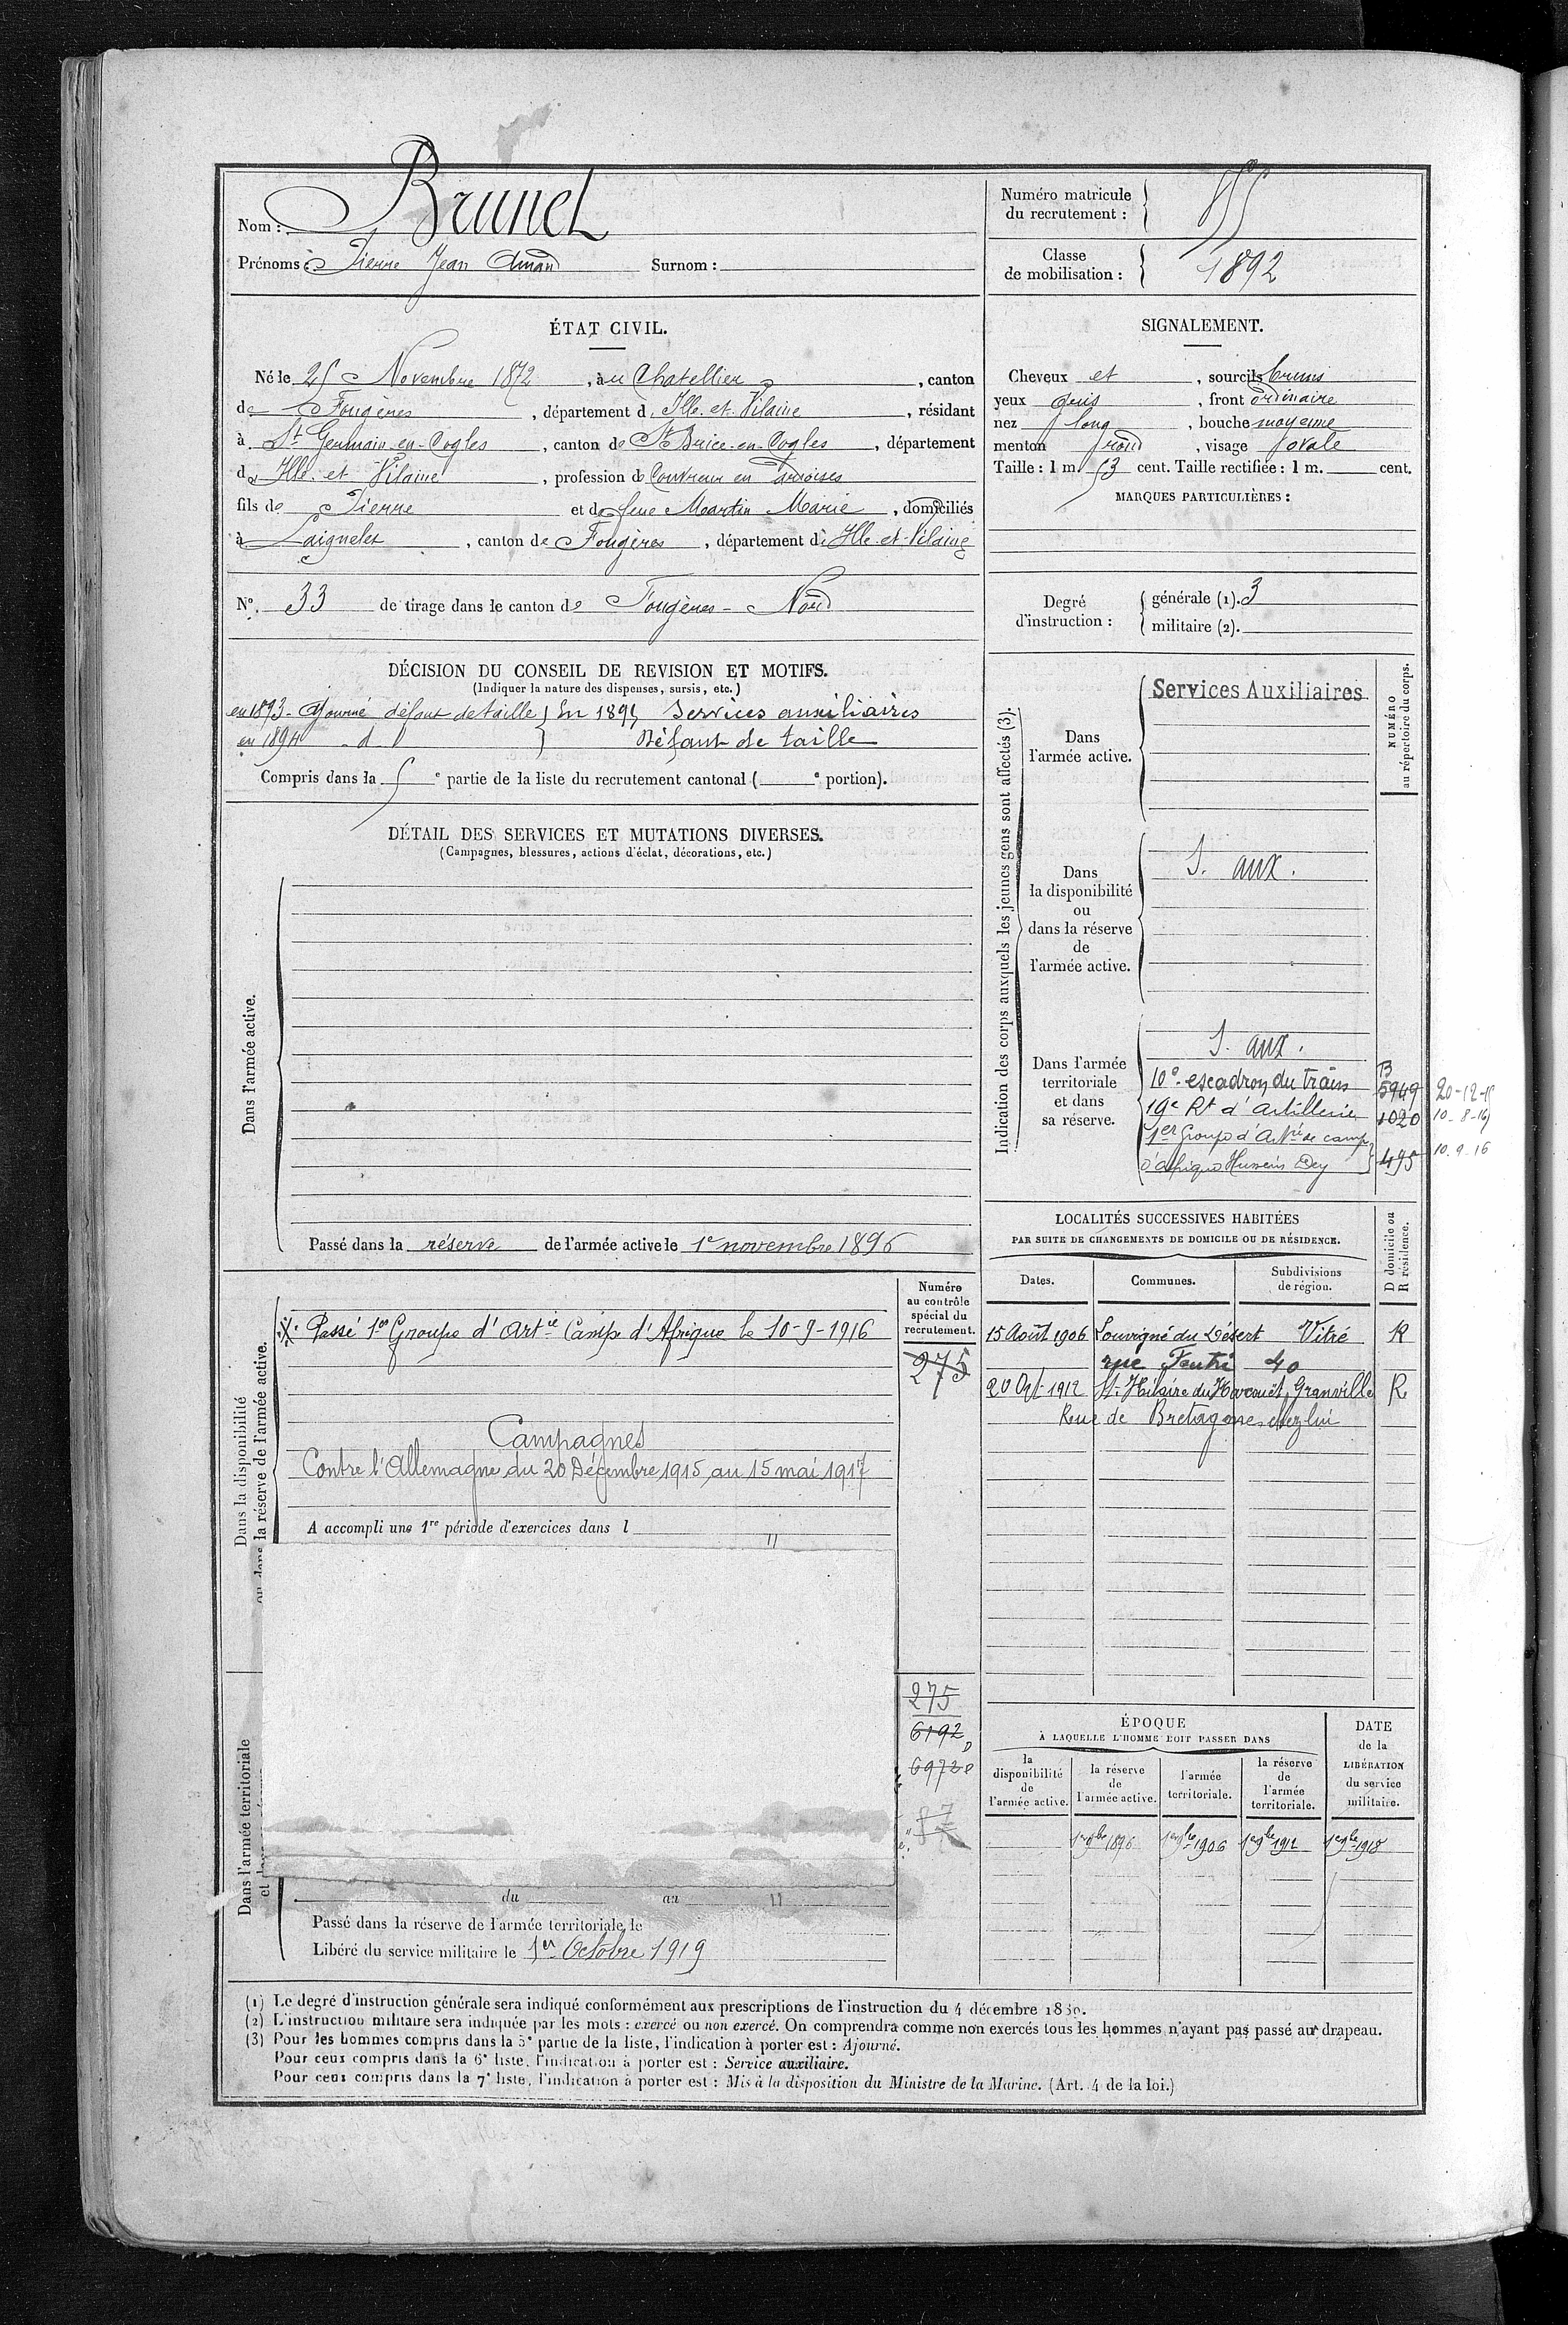 Nom : Brunel
Prénoms : Pierre Jean Amand Surnom :
Numéro matricule
du recrutement :
Classe
de mobilisation : 1892
ÉTAT CIVIL.
Né le 25 Novembre 1872, à u Chatellier, canton
de Fougères, département d' Ille-et-Vilaine, résidant
à St Germain-en-Cogles, canton de St Brice-en-Cogles, département
d' Ille-et-Vilaine, profession de Couvreur en ardoises
fils de Pierre et de feue Martin Marie, domiciliés
à Laignelet, canton de Fougères, département d' Ille-et-Vilaine
N°. 33 de tirage dans le canton de Fougères-Nord
SIGNALEMENT.
Cheveux et, sourcils bruns
yeux gris, front ordinaire
nez long, bouche moyenne
menton rond, visage ovale
Taille : 1 m. 53 cent. Taille rectifiée : 1 m. cent.
MARQUES PARTICULIÈRES :
Degré
d'instruction :
générale (1). 3
militaire (2).
DÉCISION DU CONSEIL DE REVISION ET MOTIFS.
(Indiquer la nature des dispenses, sursis, etc.)
en 1893 - Ajourné défaut de taille } En 1895 Services auxiliaires
en 1894 - d° } Défaut de taille
Compris dans la 5e partie de la liste du recrutement cantonal ( e portion).
DÉTAIL DES SERVICES ET MUTATIONS DIVERSES.
(Campagnes, blessures, actions d'éclat, décorations, etc.)
Dans l'armée active.
Passé dans la réserve de l'armée active le 1er novembre 1896
Indication des corps auxquels les jeunes gens sont affectés (3).
NUMÉRO
au répertoire du corps.
Dans
l'armée active.
Services Auxiliaires
Dans
la disponibilité
ou
dans la réserve
de
l'armée active.
S. aux.
Dans l'armée
territoriale
et dans
sa réserve.
S. aux.
10e escadron du train B 5949 20-12-15
19e Rt d'artillerie 1020 10-8-16
1er Groupe d'Artie de camp.
d'afrique Hussein Dey } 495 10.9.16
Dans la disponibilité
ou dans la réserve de l'armée active.
Passé 1er Groupe d'Artie Camp. d'Afrique le 10-9-1916
Campagnes
Contre l'Allemagne du 20 Décembre 1915 au 15 mai 1917
A accompli une 1re période d'exercices dans l
Numéro
au contrôle
spécial du
recrutement.
275
275
6192
6972
Dans l'armée territoriale
du au
Passé dans la réserve de l'armée territoriale le
Libéré du service militaire le 1er Octobre 1919
LOCALITÉS SUCCESSIVES HABITÉES
PAR SUITE DE CHANGEMENTS DE DOMICILE OU DE RÉSIDENCE.
D domicile ou
R résidence.
Dates. Communes. Subdivisions
de région.
15 Août 1906 Louvigné du Désert Vitré R
rue 40
20 1912 St. Hilaire du Harcouët Granville R
Rue de Bretagne chez lui
ÉPOQUE
À LAQUELLE L'HOMME DOIT PASSER DANS
DATE
de la
LIBÉRATION
du service
militaire.
la
disponibilité
de
l'armée active.
la réserve
de
l'armée active.
l'armée
territoriale.
la réserve
de
l'armée
territoriale.
1er 9bre 1896 1er 9bre 1906 1er 9bre 1912 1er 9bre 1918
(1) Le degré d'instruction générale sera indiqué conformément aux prescriptions de l'instruction du 4 décembre 1889.
(2) L'instruction militaire sera indiquée par les mots : exercé ou non exercé. On comprendra comme non exercés tous les hommes n'ayant pas passé au drapeau.
(3) Pour les hommes compris dans la 5e partie de la liste, l'indication à porter est : Ajourné.
Pour ceux compris dans la 6e liste, l'indication à porter est : Service auxiliaire.
Pour ceux compris dans la 7e liste, l'indication à porter est : Mis à la disposition du Ministre de la Marine. (Art. 4 de la loi.)